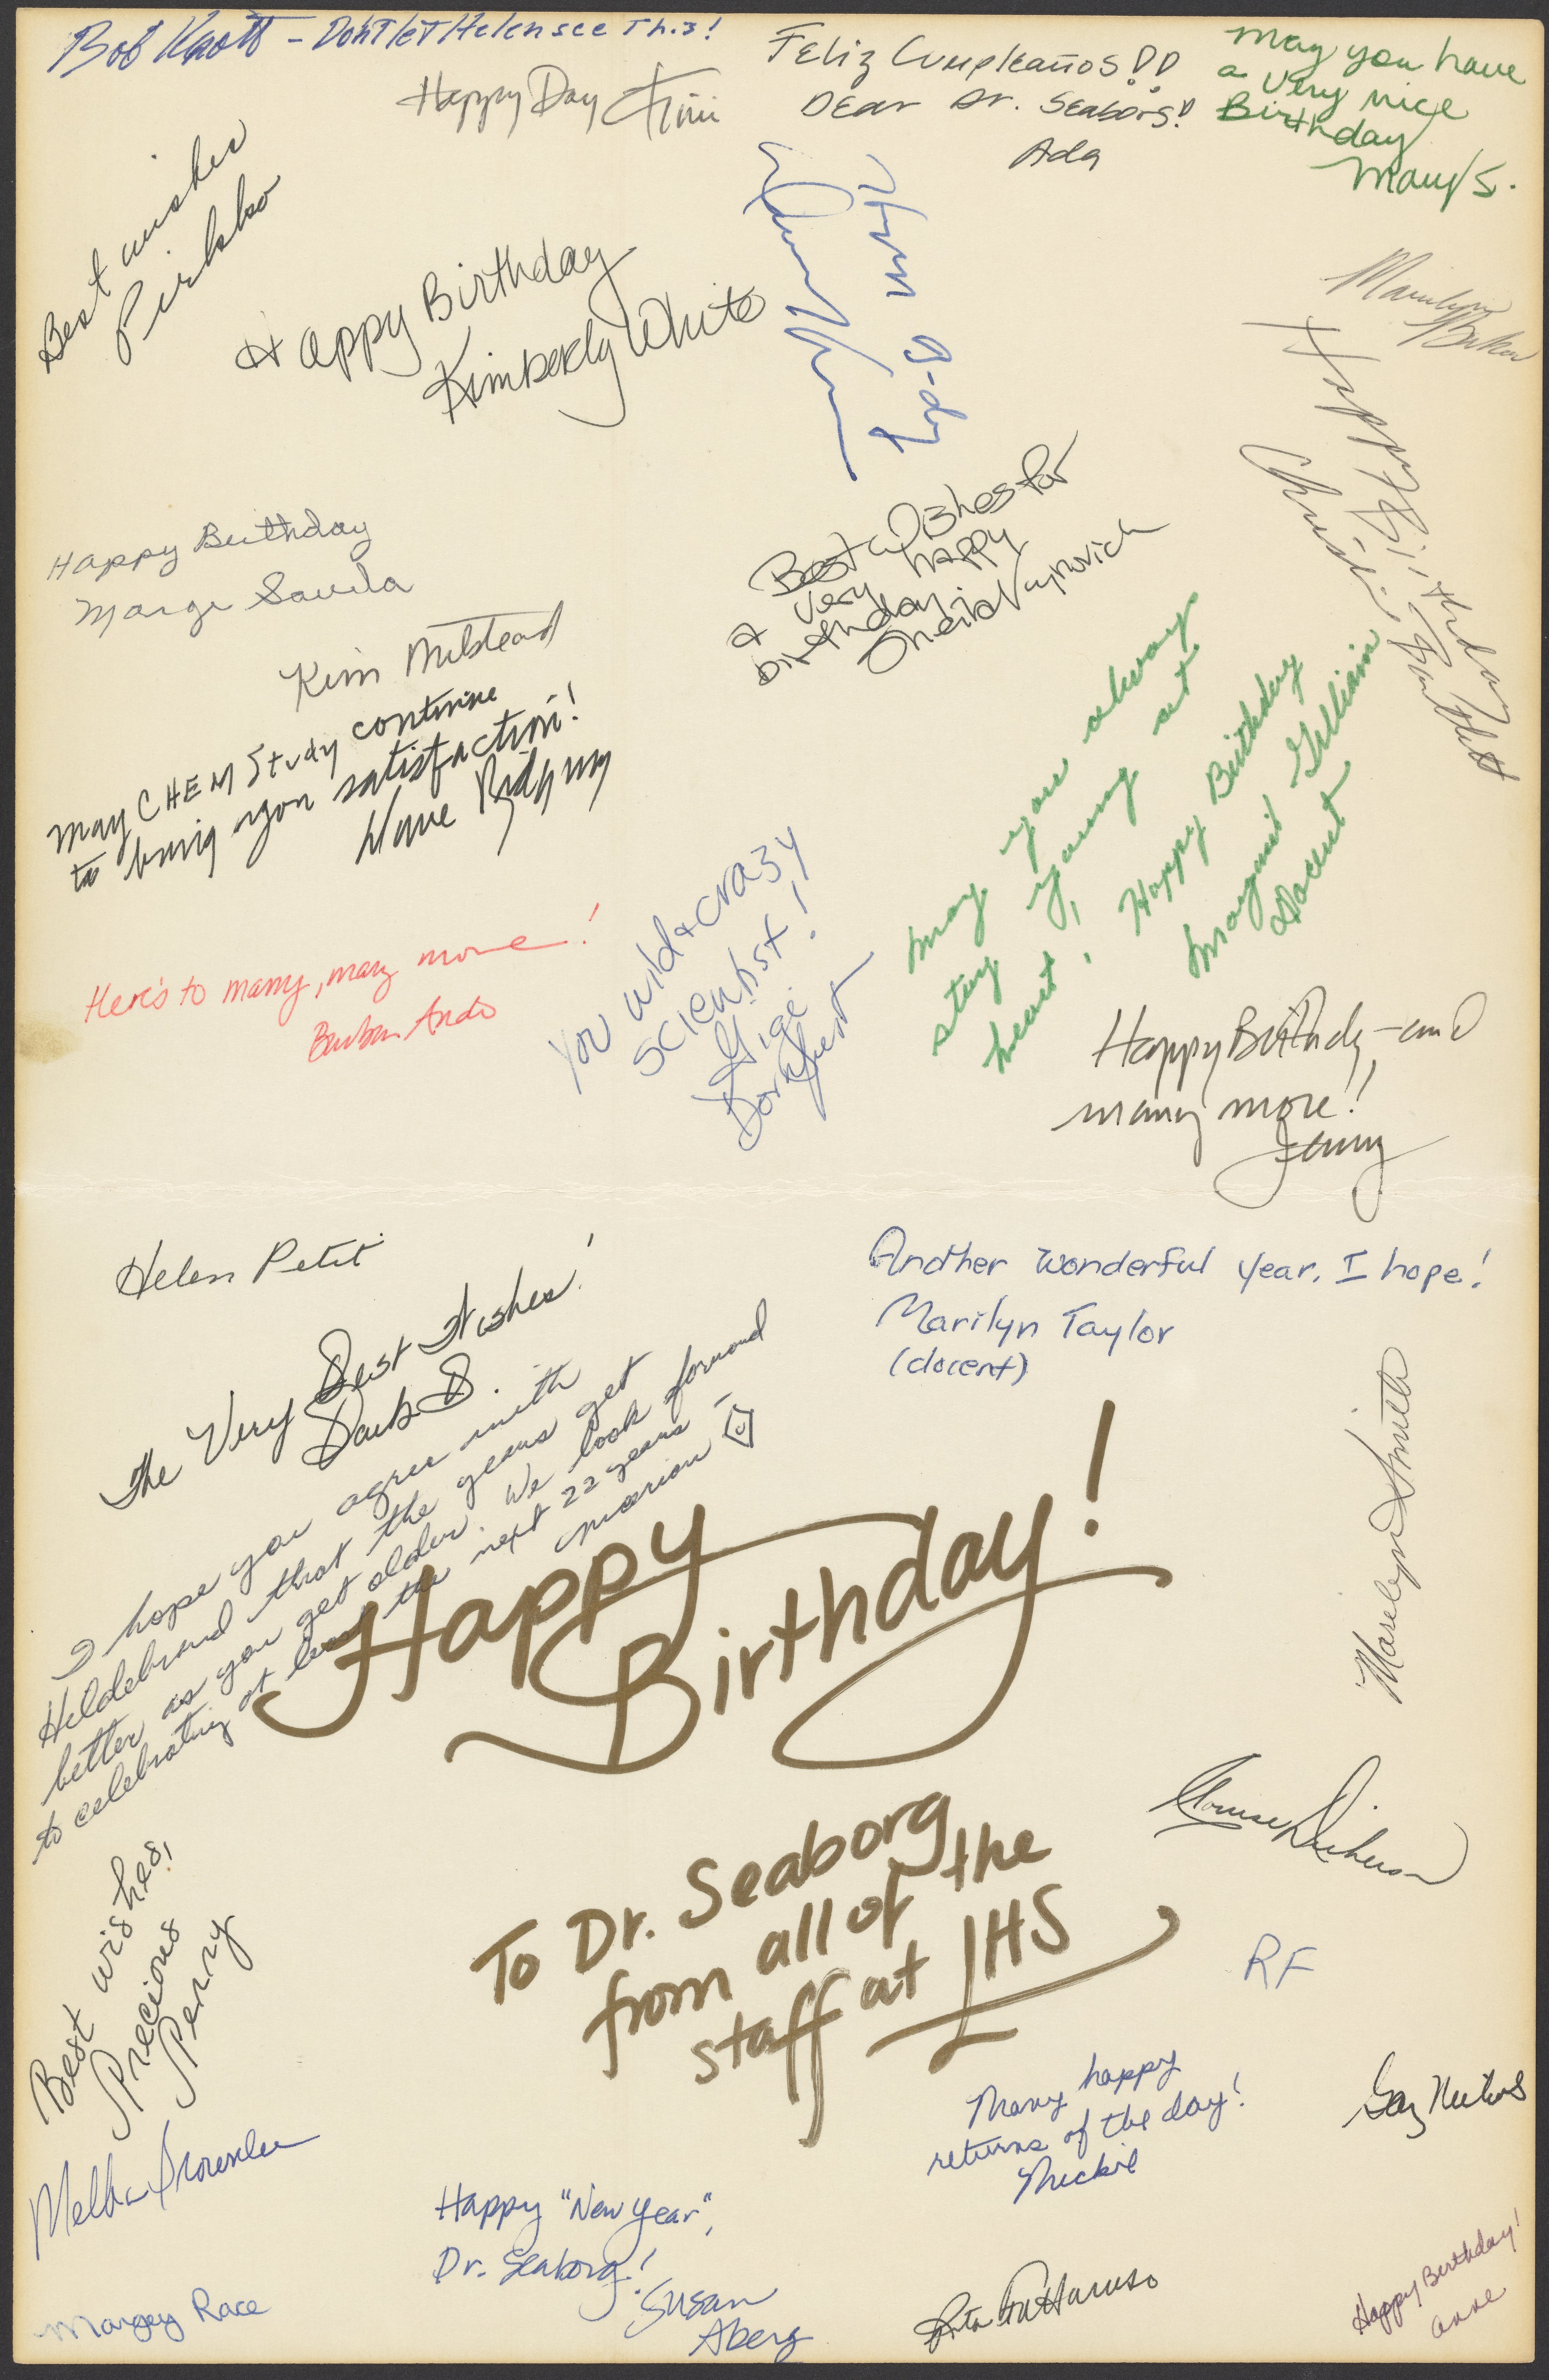 Bob Knott - Don't let Helen see This!
Happy Day
Feliz Cumpleaños!!
Dear Dr. Seaborg!
Ada
May you have
a very nice
Birthday
Mary S.
Best wishes
Pirkko
Happy Birthday
Kimberly White
Happy B-day
Marilyn
Baker
Happy Birthday
Christine Bartlett
Best wishes for
a very happy
birthday.
Sheila
Happy Birthday
Marge Savela
Kim Milstead
May CHEM Study continue
to bring you satisfaction!
Dave Ridgway
May you always
stay young at
heart! Happy Birthday
Margaret Gilliam
Docent
You wild + crazy
scientist!
Gigi
Dornfest
Here's to many, many more!
Barbara Ando
Happy Birthday - and
many more!!
Jenny
Helen Petit
Another wonderful year, I hope!
Marilyn Taylor
(docent)
The Very Best Wishes!
Barb B.
I hope you agree with
Hildebrand that the years get
better as you get older. We look forward
to celebrating at least the next 22 years -
Marion
Happy
Birthday!
Marilyn Smith
To Dr. Seaborg
from all of the
staff at LHS
Louise Dickerson
RF
Best wishes,
Precious
Perry
Many happy
returns of the day!
Mickie
Melba
Happy "New Year",
Dr. Seaborg!
Susan
Aberg
Margey Race
Rita
Happy Birthday!
Anne